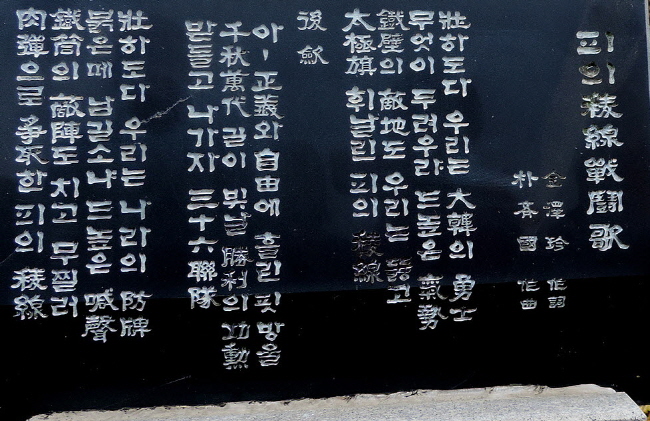 피의 稜線戰鬪歌
金澤珍 作詞
朴齊國 作曲
壯하도다 우리는 大韓의 勇士
무엇이 두려우랴 드높은 氣勢
鐵壁의 敵地도 우리는 뚫고
太極旗 휘날린 피의 稜線
後斂
아- 正義와 自由에 흘린 핏방울
千秋萬代 길이 빛날 勝利의 功勳
받들고 나가자 三十六聯隊
壯하도다 우리는 나라의 防牌
붉은메 넘길소냐 드높은 喊聲
鐵筒의 敵陣도 치고 무찔러
肉彈으로 爭取한 피의 稜線